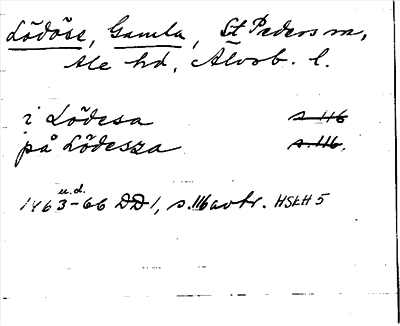 Lödöse, Gamla, St Peders sn,
Ale hd, Älvsb. l.
i Lödesa s 116
på Lödesza s. 116.
u. d.
1463-66 DD 1, s. 116 avtr. HSkH 5